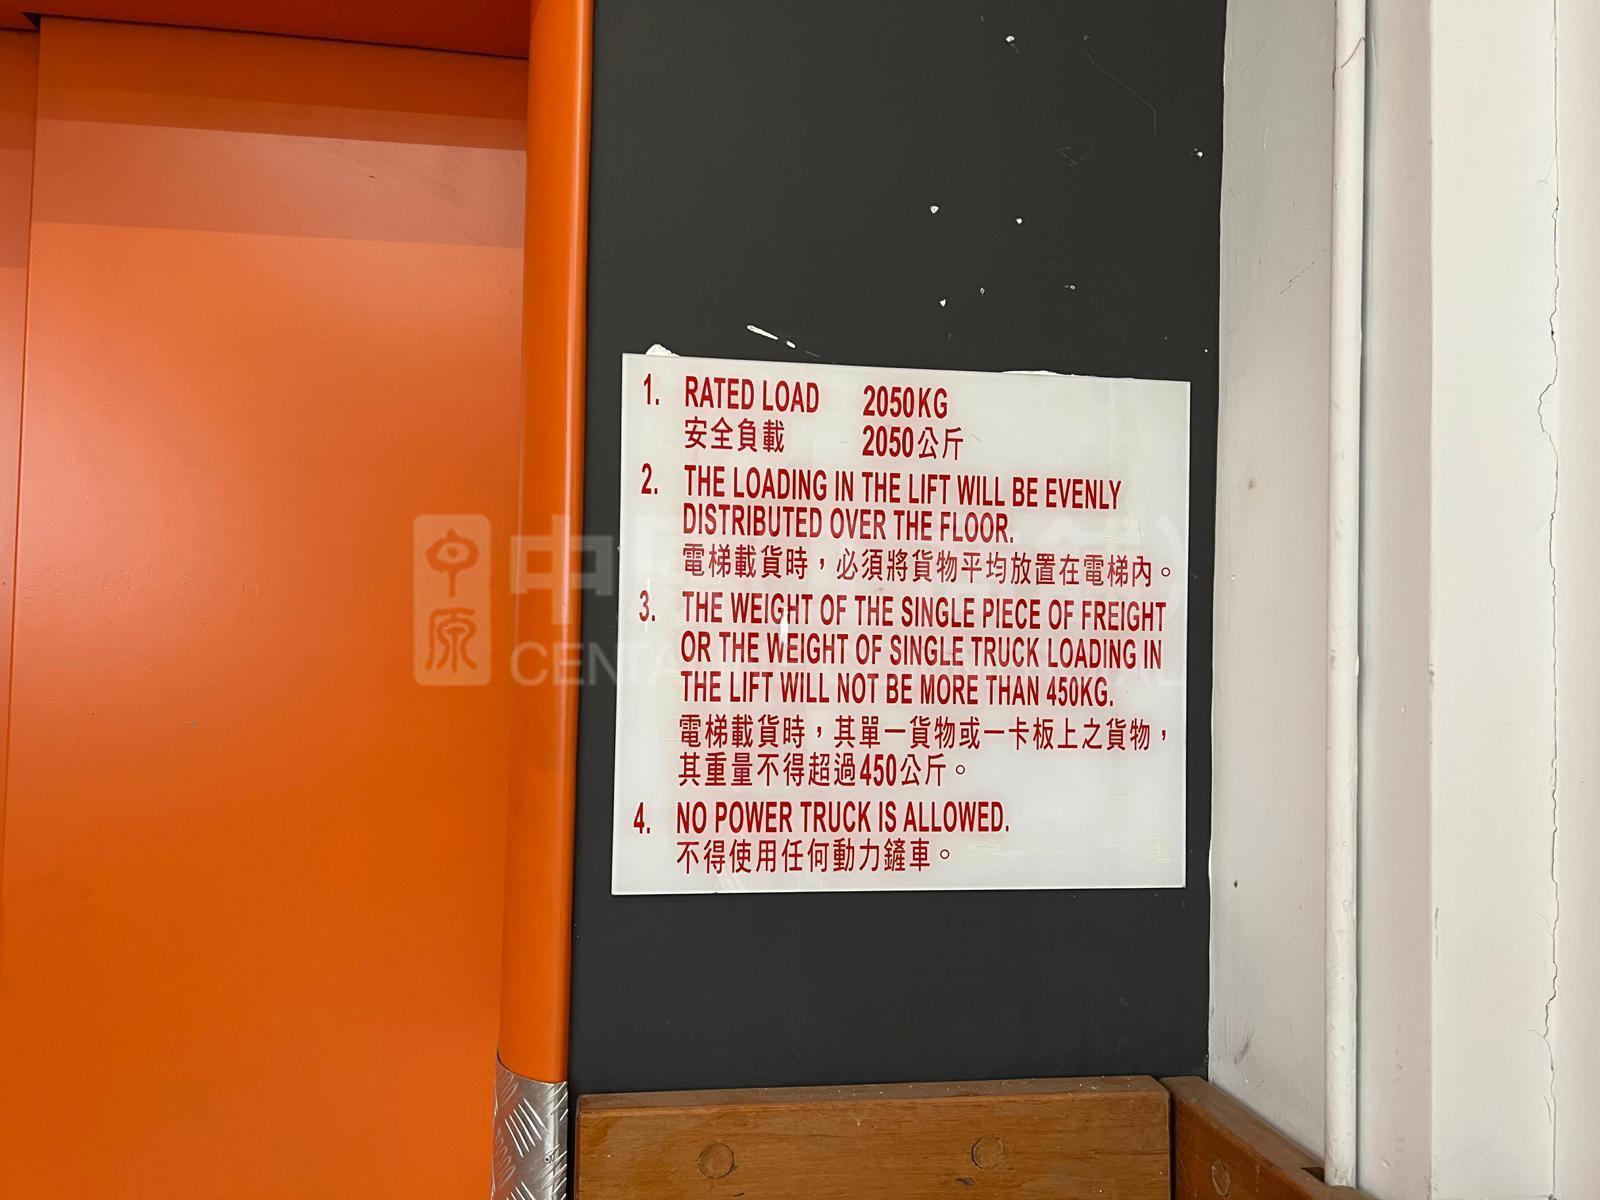 1. RATED LOAD 2050KG
安全負載 2050公斤
2. THE LOADING IN THE LIFT WILL BE EVENLY
DISTRIBUTED OVER THE FLOOR.
電梯載貨時，必須將貨物平均放置在電梯內。
3. THE WEIGHT OF THE SINGLE PIECE OF FREIGHT
OR THE WEIGHT OF SINGLE TRUCK LOADING IN
THE LIFT WILL NOT BE MORE THAN 450KG.
電梯載貨時，其單一貨物或一卡板上之貨物，
其重量不得超過450公斤。
4. NO POWER TRUCK IS ALLOWED.
不得使用任何動力鏟車。
中原